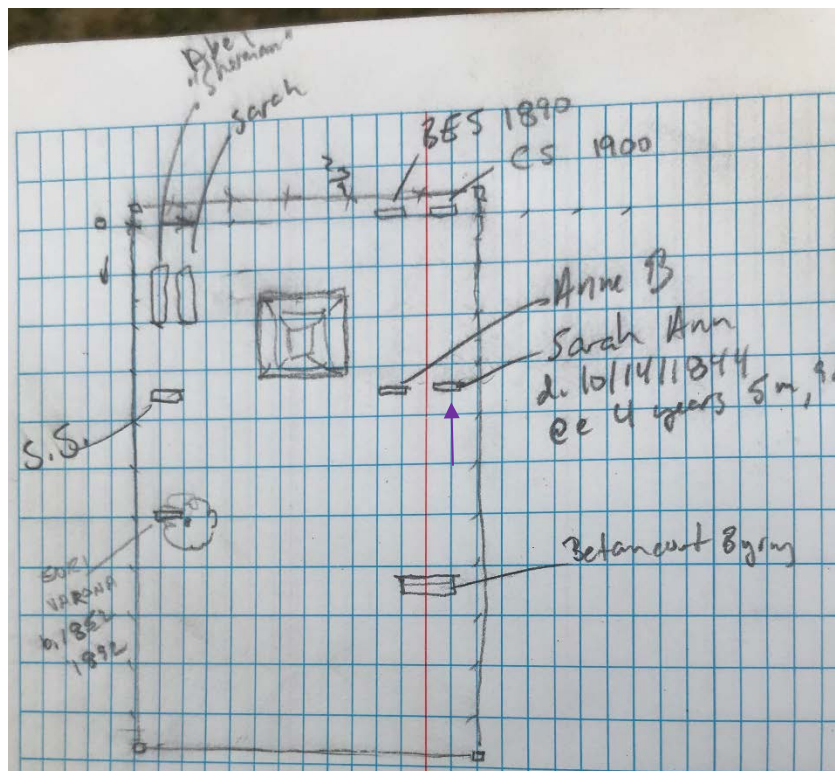 "Sherman"
Sarah
BES 1890
CS 1900
Anne B
Sarah Ann
d. 10/14/1844
4 years 5 m,
S.S.
Betancourt
VARONA
b. 1852
1892